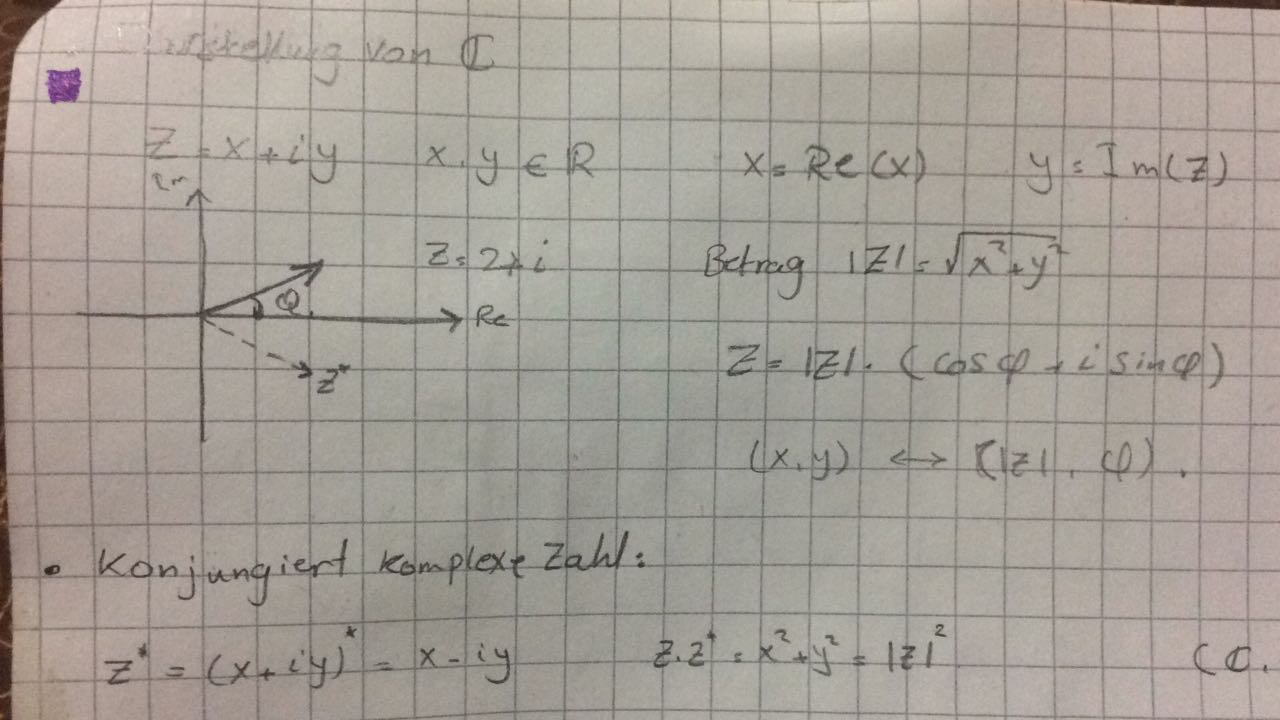 von ℂ
Z = x + iy    x, y ∈ R    x = Re(x)    y = Im(Z)
Im
Z = 2 + i    Betrag |Z| = √(x² + y²)
φ    Re
Z = |Z| · (cos φ + i sin φ)
Z*
(x, y) ↔ (|z|, φ).
• Konjungiert komplexe Zahl:
Z* = (x + iy)* = x - iy    z.z* = x² + y² = |z|²    (ℂ.